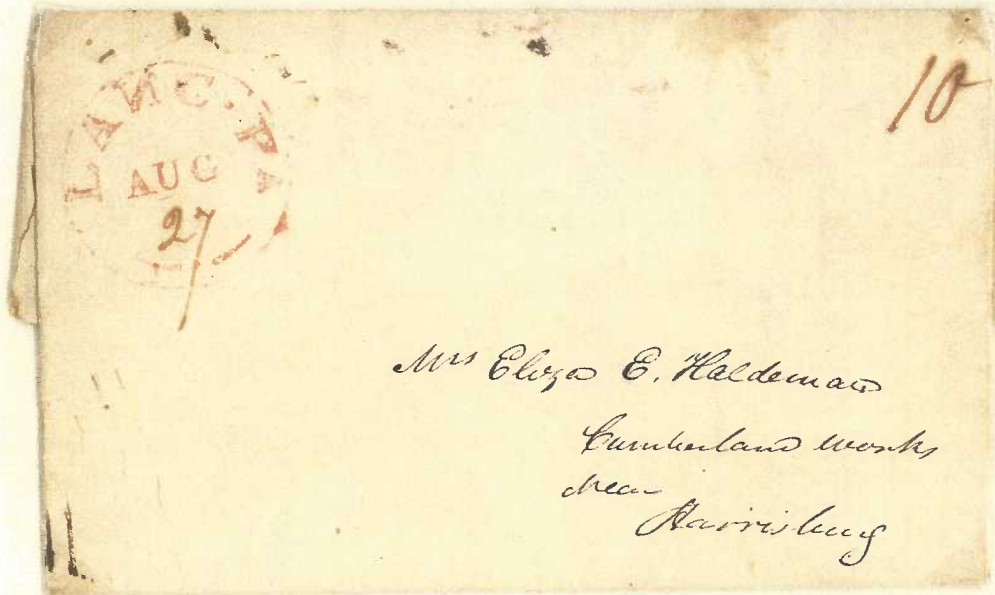 LANC. PA
AUG
27
10
Mrs Eliza E. Haldeman
Cumberland works
Near
Harrisburg